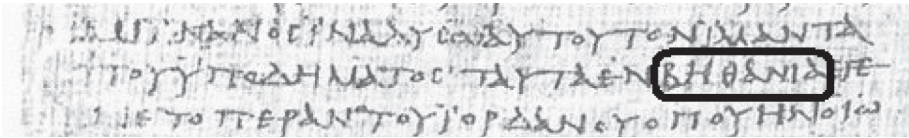 ΜΙ ΙΚΑΝΟC ΙΝΑ ΛΥCΩ ΑΥΤΟΥ ΤΟΝ ΙΜΑΝΤΑ
ΤΟΥ ΥΠΟΔΗΜΑΤΟC ΤΑΥΤΑ ΕΝ ΒΗΘΑΝΙΑ ΕΓΕ
ΝΕΤΟ ΠΕΡΑΝ ΤΟΥ ΙΟΡΔΑΝΟΥ ΟΠΟΥ ΗΝ Ο ΙΩ